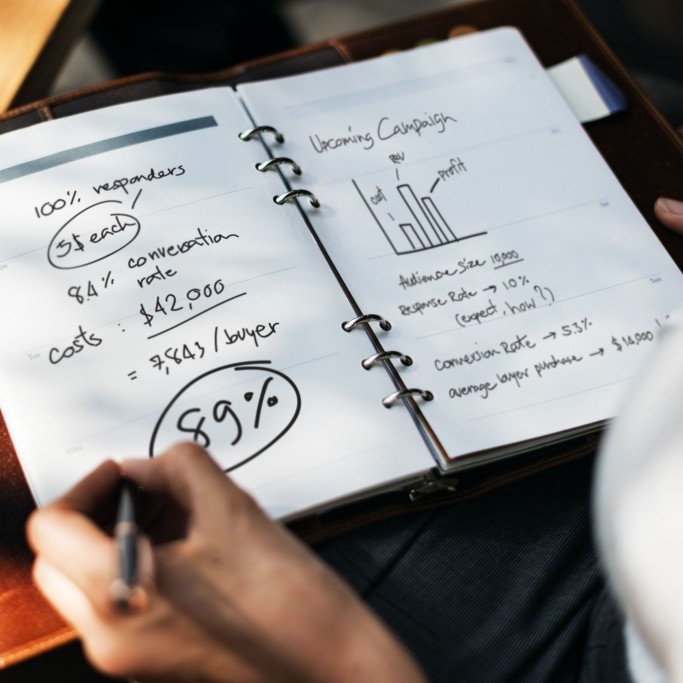 100% responders
3$ each
84% conversation
rate
costs : $42,000
= 7,843 / buyer
89%
Upcoming Campaign
cost
Rev
Profit
Audience Size 10,000
Response Rate → 10%
(expect, how?)
Conversion Rate → 5.3%
average buyer purchase → $14,000